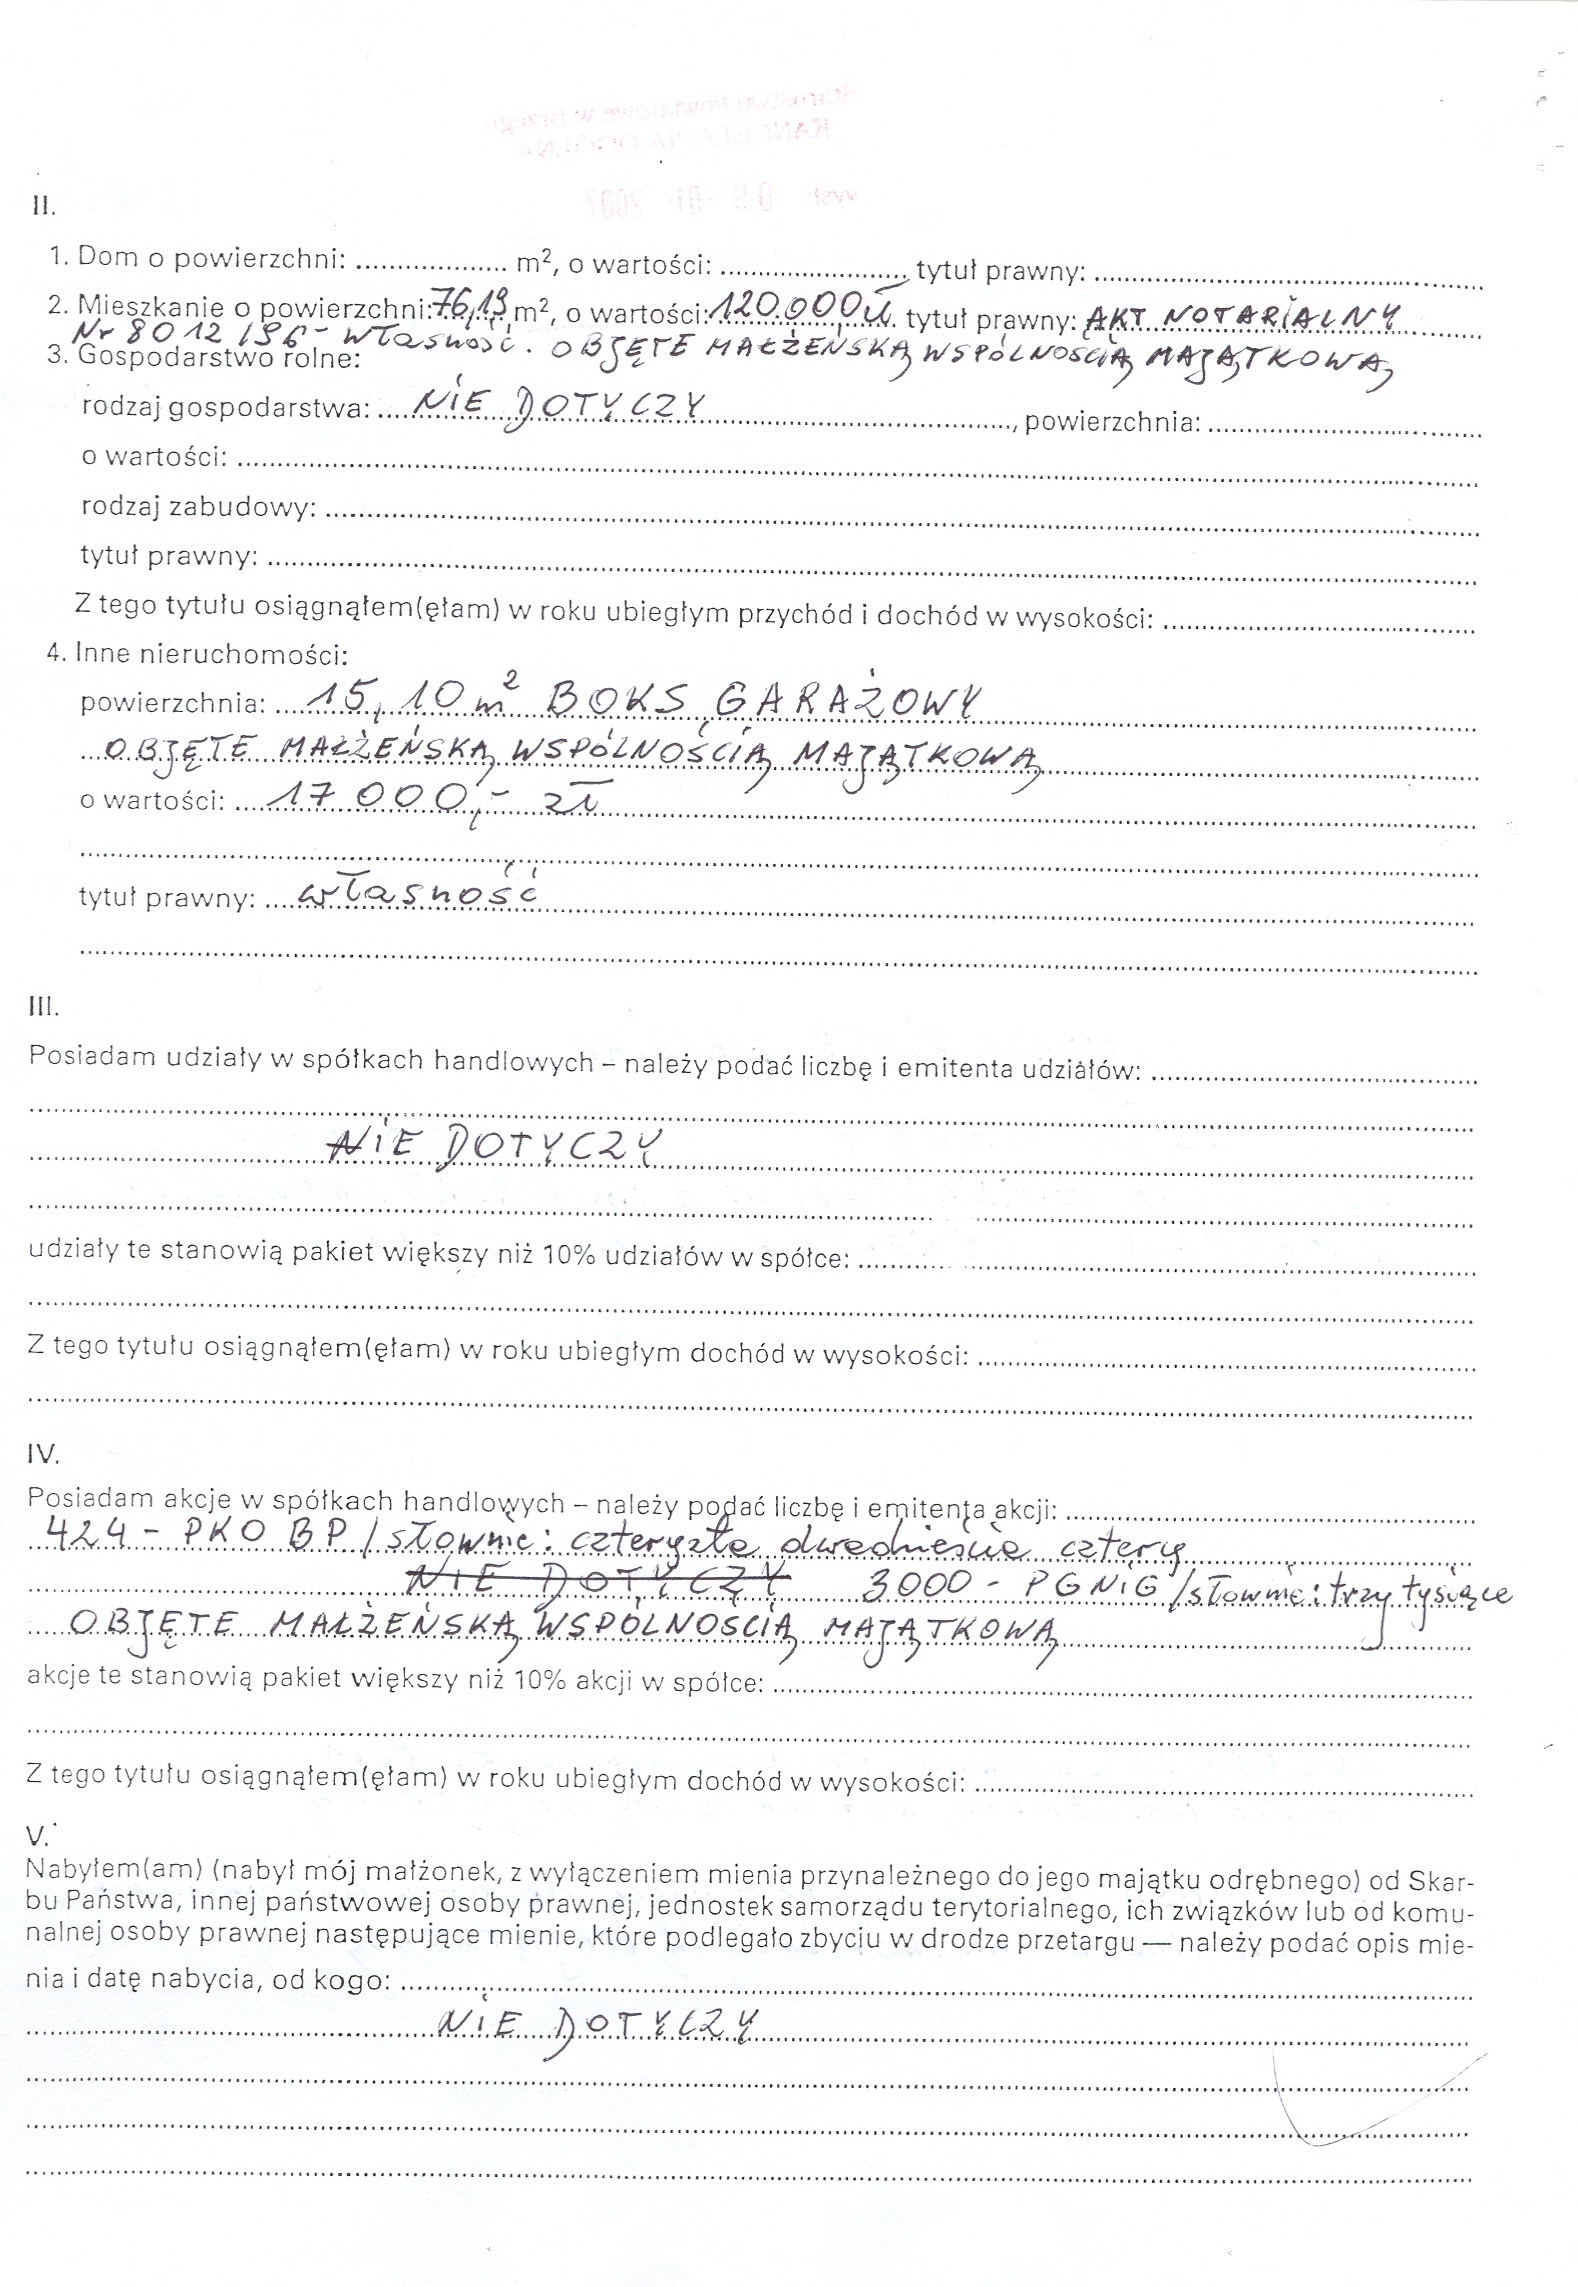 II.
1. Dom o powierzchni: .................... m², o wartości: ........................., tytuł prawny: ..................................................
2. Mieszkanie o powierzchni: 76,19 m², o wartości: 120.000 zł. tytuł prawny: AKT NOTARIALNY
Nr 8012/96 - własność. OBJĘTE MAŁŻEŃSKĄ WSPÓLNOŚCIĄ MAJĄTKOWĄ
3. Gospodarstwo rolne:
rodzaj gospodarstwa: .... NIE DOTYCZY ............................................, powierzchnia: ....................................
o wartości: ....................................................................................................
rodzaj zabudowy: ....................................................................................................
tytuł prawny: ....................................................................................................
Z tego tytułu osiągnąłem(ęłam) w roku ubiegłym przychód i dochód w wysokości: ........................................
4. Inne nieruchomości:
powierzchnia: .... 15,10 m² BOKS GARAŻOWY
OBJĘTE MAŁŻEŃSKĄ WSPÓLNOŚCIĄ MAJĄTKOWĄ
o wartości: .... 17 000,- zł
tytuł prawny: .... własność
III.
Posiadam udziały w spółkach handlowych – należy podać liczbę i emitenta udziałów: ........................................
NIE DOTYCZY
udziały te stanowią pakiet większy niż 10% udziałów w spółce: ....................................................
Z tego tytułu osiągnąłem(ęłam) w roku ubiegłym dochód w wysokości: ....................................................
IV.
Posiadam akcje w spółkach handlowych – należy podać liczbę i emitenta akcji: ....................................................
424 - PKO BP / słownie: czterysta dwadzieścia cztery
NIE DOTYCZY 3000 - PGNiG /słownie: trzy tysiące
OBJĘTE MAŁŻEŃSKĄ WSPÓLNOSCIĄ MAJĄTKOWĄ
akcje te stanowią pakiet większy niż 10% akcji w spółce: ....................................................
Z tego tytułu osiągnąłem(ęłam) w roku ubiegłym dochód w wysokości: ....................................................
V.
Nabyłem(am) (nabył mój małżonek, z wyłączeniem mienia przynależnego do jego majątku odrębnego) od Skar-
bu Państwa, innej państwowej osoby prawnej, jednostek samorządu terytorialnego, ich związków lub od komu-
nalnej osoby prawnej następujące mienie, które podlegało zbyciu w drodze przetargu — należy podać opis mie-
nia i datę nabycia, od kogo: ....................................................
NIE DOTYCZY